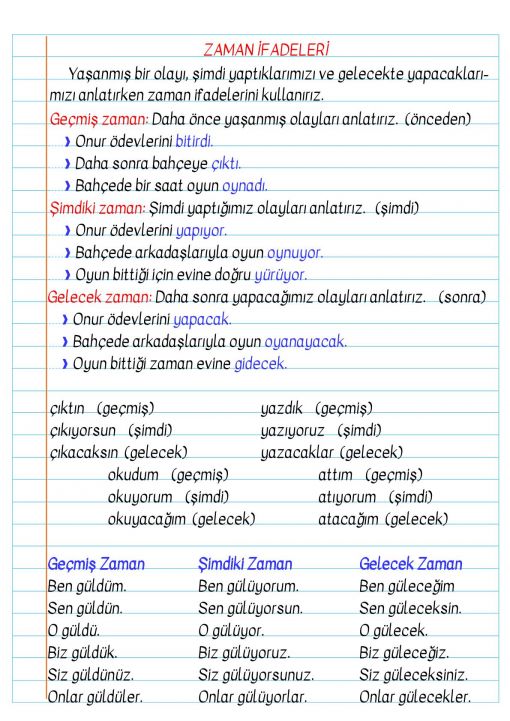 ZAMAN İFADELERİ
Yaşanmış bir olayı, şimdi yaptıklarımızı ve gelecekte yapacakları-
mızı anlatırken zaman ifadelerini kullanırız.
Geçmiş zaman: Daha önce yaşanmış olayları anlatırız. (önceden)
❫ Onur ödevlerini bitirdi.
❫ Daha sonra bahçeye çıktı.
❫ Bahçede bir saat oyun oynadı.
Şimdiki zaman: Şimdi yaptığımız olayları anlatırız. (şimdi)
❫ Onur ödevlerini yapıyor.
❫ Bahçede arkadaşlarıyla oyun oynuyor.
❫ Oyun bittiği için evine doğru yürüyor.
Gelecek zaman: Daha sonra yapacağımız olayları anlatırız. (sonra)
❫ Onur ödevlerini yapacak.
❫ Bahçede arkadaşlarıyla oyun oyanayacak.
❫ Oyun bittiği zaman evine gidecek.
çıktın (geçmiş) yazdık (geçmiş)
çıkıyorsun (şimdi) yazıyoruz (şimdi)
çıkacaksın (gelecek) yazacaklar (gelecek)
okudum (geçmiş) attım (geçmiş)
okuyorum (şimdi) atıyorum (şimdi)
okuyacağım (gelecek) atacağım (gelecek)
Geçmiş Zaman Şimdiki Zaman Gelecek Zaman
Ben güldüm. Ben gülüyorum. Ben güleceğim
Sen güldün. Sen gülüyorsun. Sen güleceksin.
O güldü. O gülüyor. O gülecek.
Biz güldük. Biz gülüyoruz. Biz güleceğiz.
Siz güldünüz. Siz gülüyorsunuz. Siz güleceksiniz.
Onlar güldüler. Onlar gülüyorlar. Onlar gülecekler.